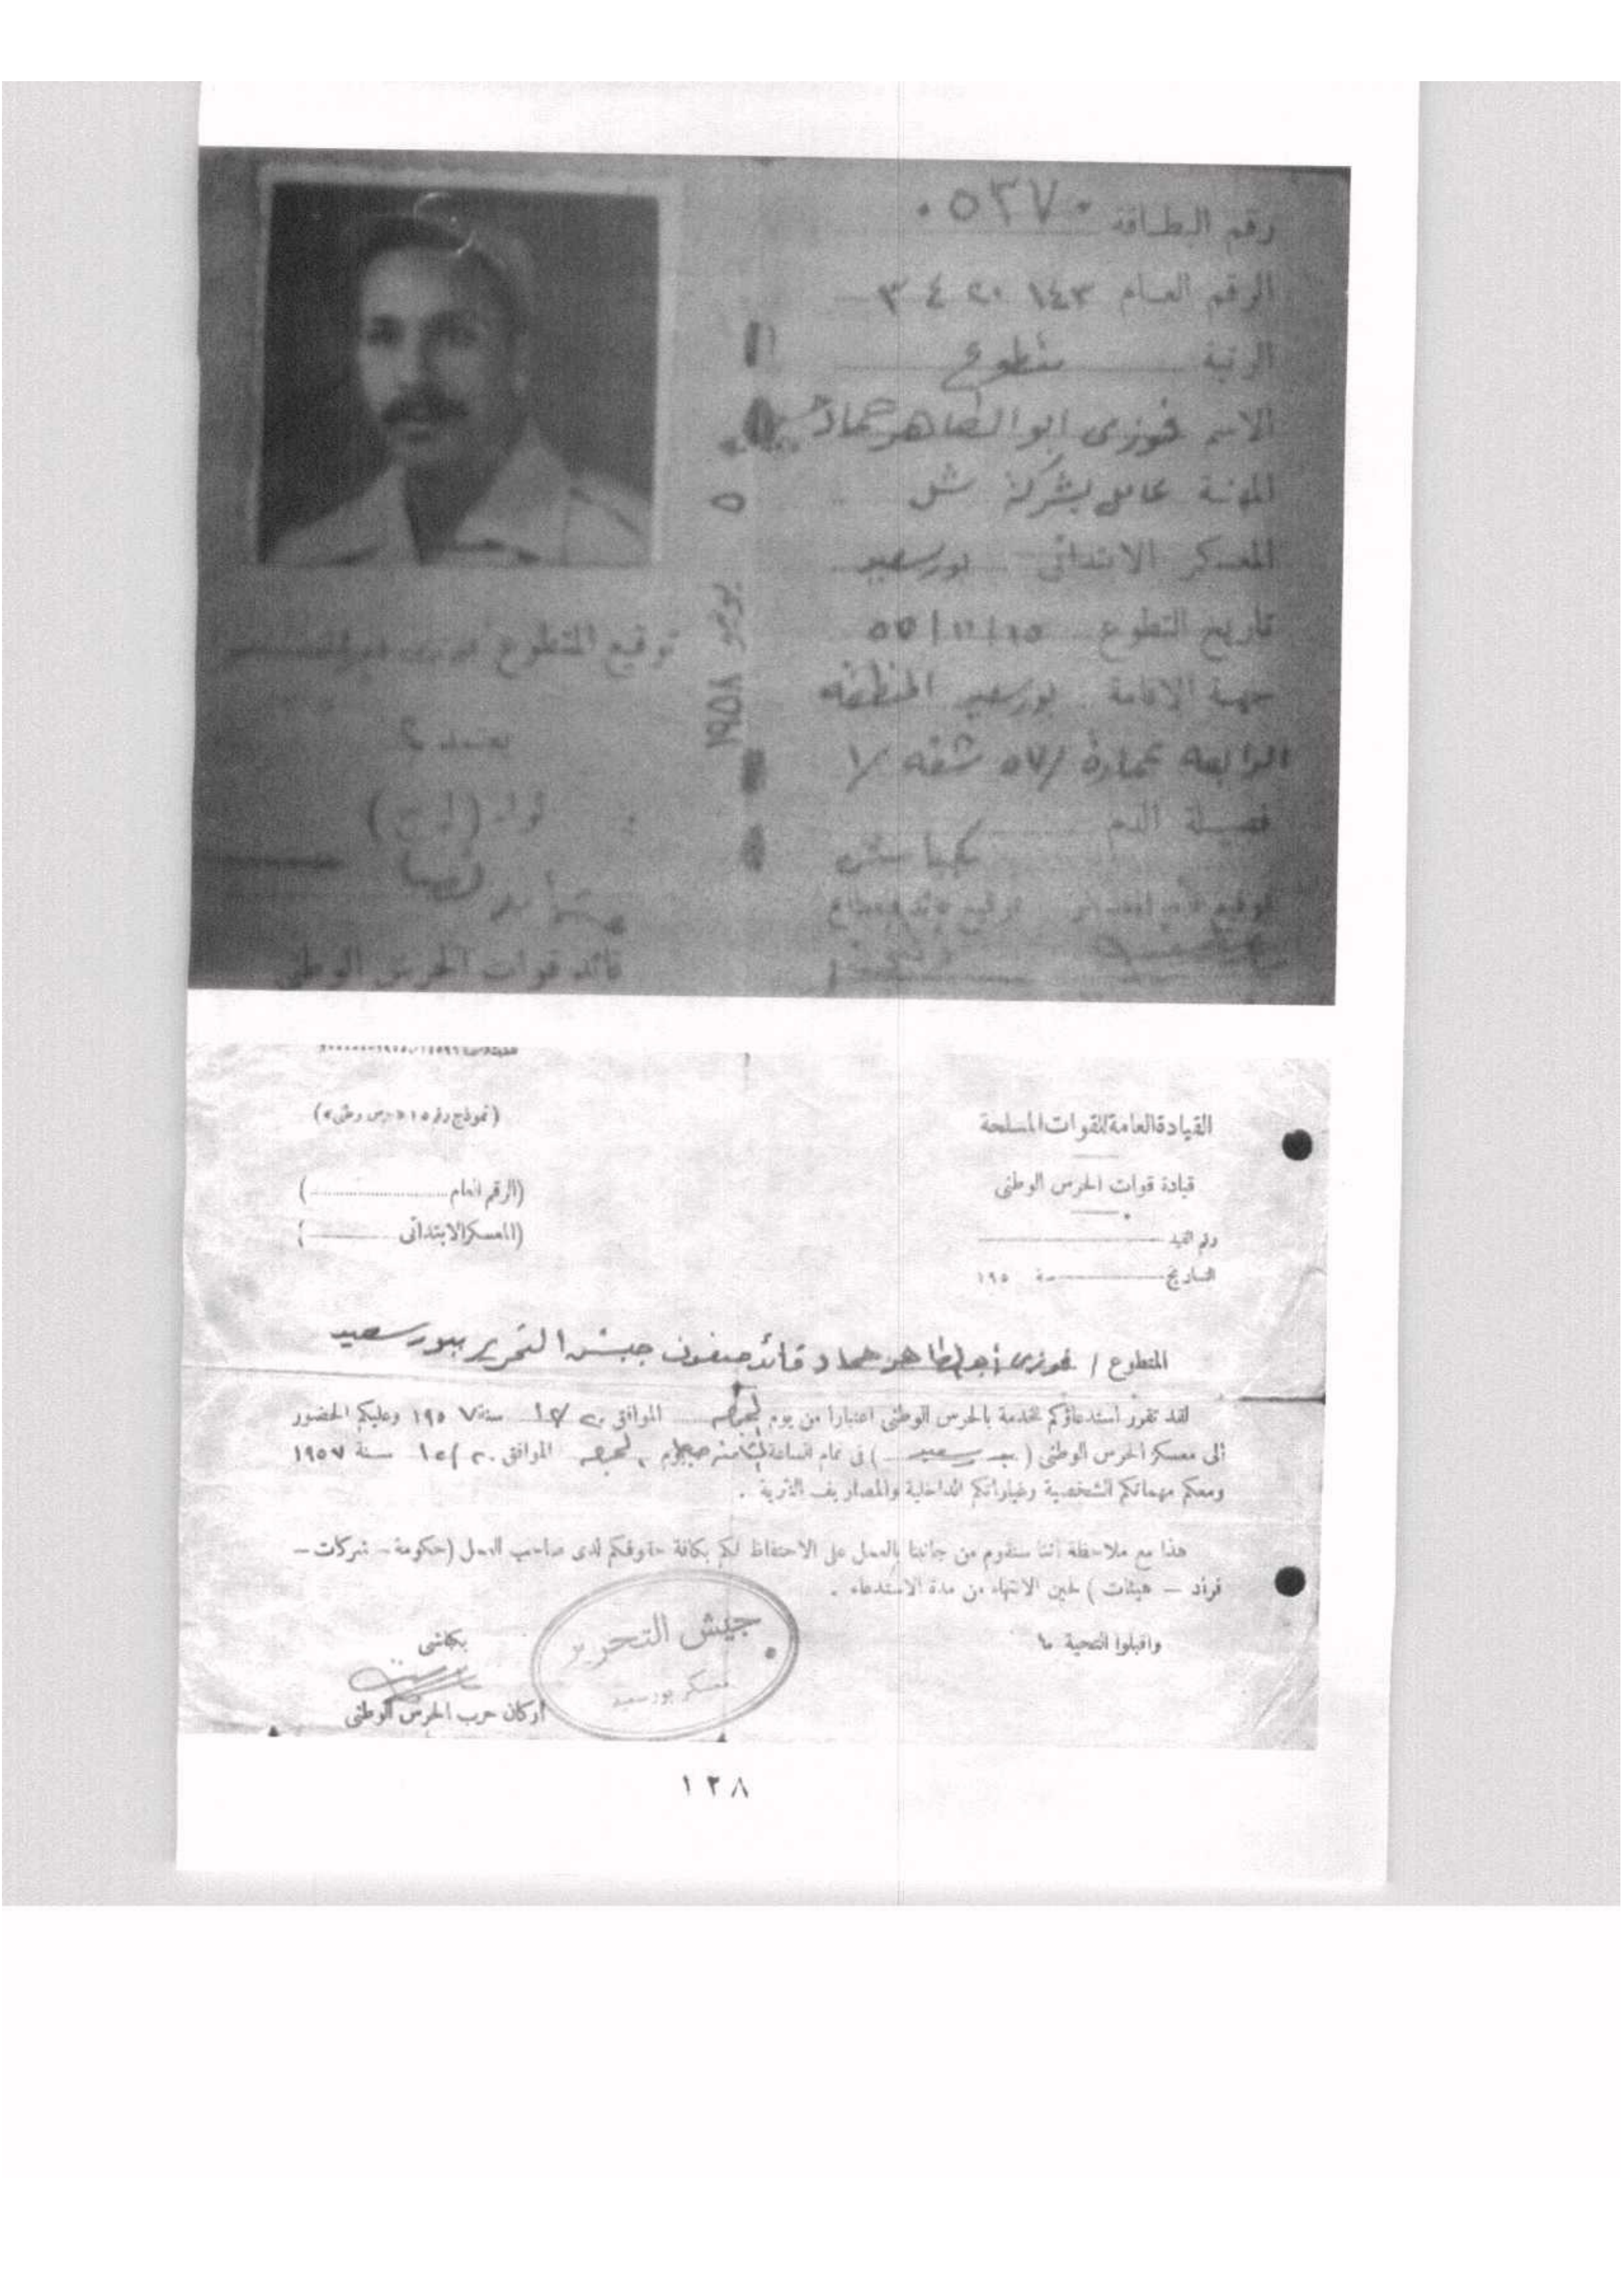 رقم البطاقة ٠٥٣٧٠
الرقم العام ١٤٣ ٢٠ ٤ ٣
الرتبة متطوع
الاسم فوزى ابو الطاهر حماد
المهنة عامل بشركة شل
المعسكر الابتدائى بورسعيد
تاريخ التطوع
جهة الاقامة بورسعيد المنطقه
الرابعه عمارة /٥٧ شقه /١
فصيلة الدم
توقيع المتطوع
يعتمد
لواء
قائد قوات الحرس الوطنى
٥ يونيو ١٩٥٨
القيادة العامة للقوات المسلحة
قيادة قوات الحرس الوطنى
رقم القيد
التاريخ سنة ١٩٥
(الرقم العام)
(المعسكر الابتدائى)
المتطوع / فوزى أبو الطاهر حماد قائد صفوف جيش التحرير ببورسعيد
لقد تقرر استدعاؤكم للخدمة بالحرس الوطنى اعتبارا من يوم الموافق سنة ١٩٥٧ وعليكم الحضور
الى معسكر الحرس الوطنى (بورسعيد) فى تمام الساعة الموافق سنة ١٩٥٧
ومعكم مهماتكم الشخصية وغياراتكم الداخلية والمصاريف النثرية .
هذا مع ملاحظة أننا سنقوم من جانبنا بالعمل على الاحتفاظ لكم بكافة حقوقكم لدى صاحب العمل (حكومة – شركات –
فراد – هيئات ) لحين الانتهاء من مدة الاستدعاء .
واقبلوا التحية
بكباشى
أركان حرب الحرس الوطنى
جيش التحرير
معسكر بورسعيد
١٢٨